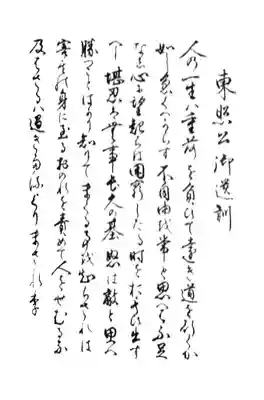 東照公御遺訓
人の一生ハ重荷を負ひて遠き道を行くか
如し急くへからす不自由を常と思へは不足
なし心に望起らは困窮したる時を思ひ出す
へし堪忍は無事長久の基怒は敵と思へ
勝つことはかり知りてまくる事を知らされは
害其の身に至るおのれを責めて人をせむるな
及はさるハ過きたるよりまされり